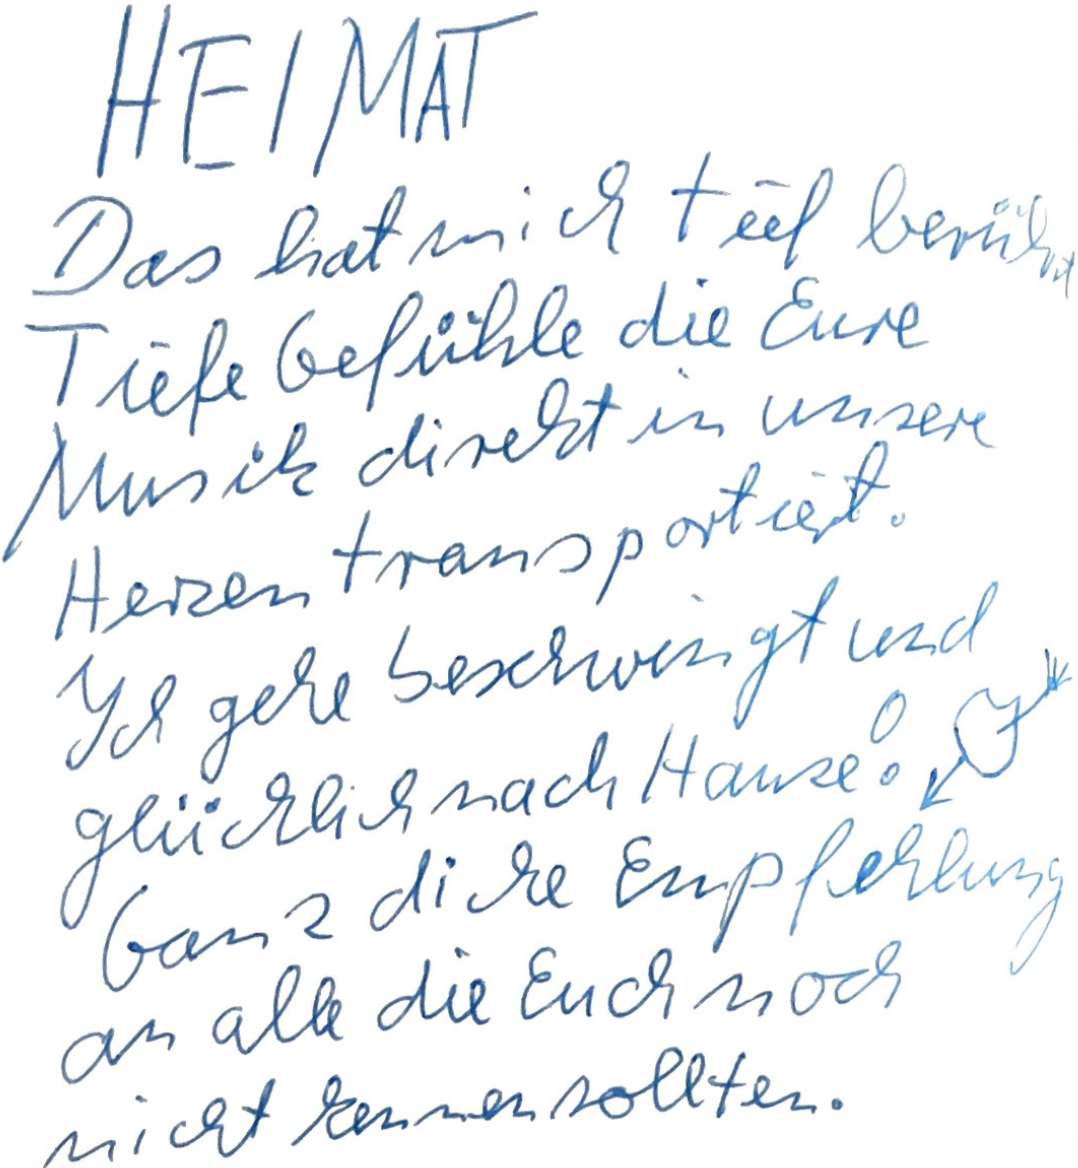 HEIMAT
Das hat mich tief berührt
Tiefe Gefühle die Eure
Musik direkt in unsere
Herzen transportiert.
Ich gehe beschwingt und
glücklich nach Hause!
Ganz dicke Empfehlung
an alle die Euch noch
nicht kennen sollten.